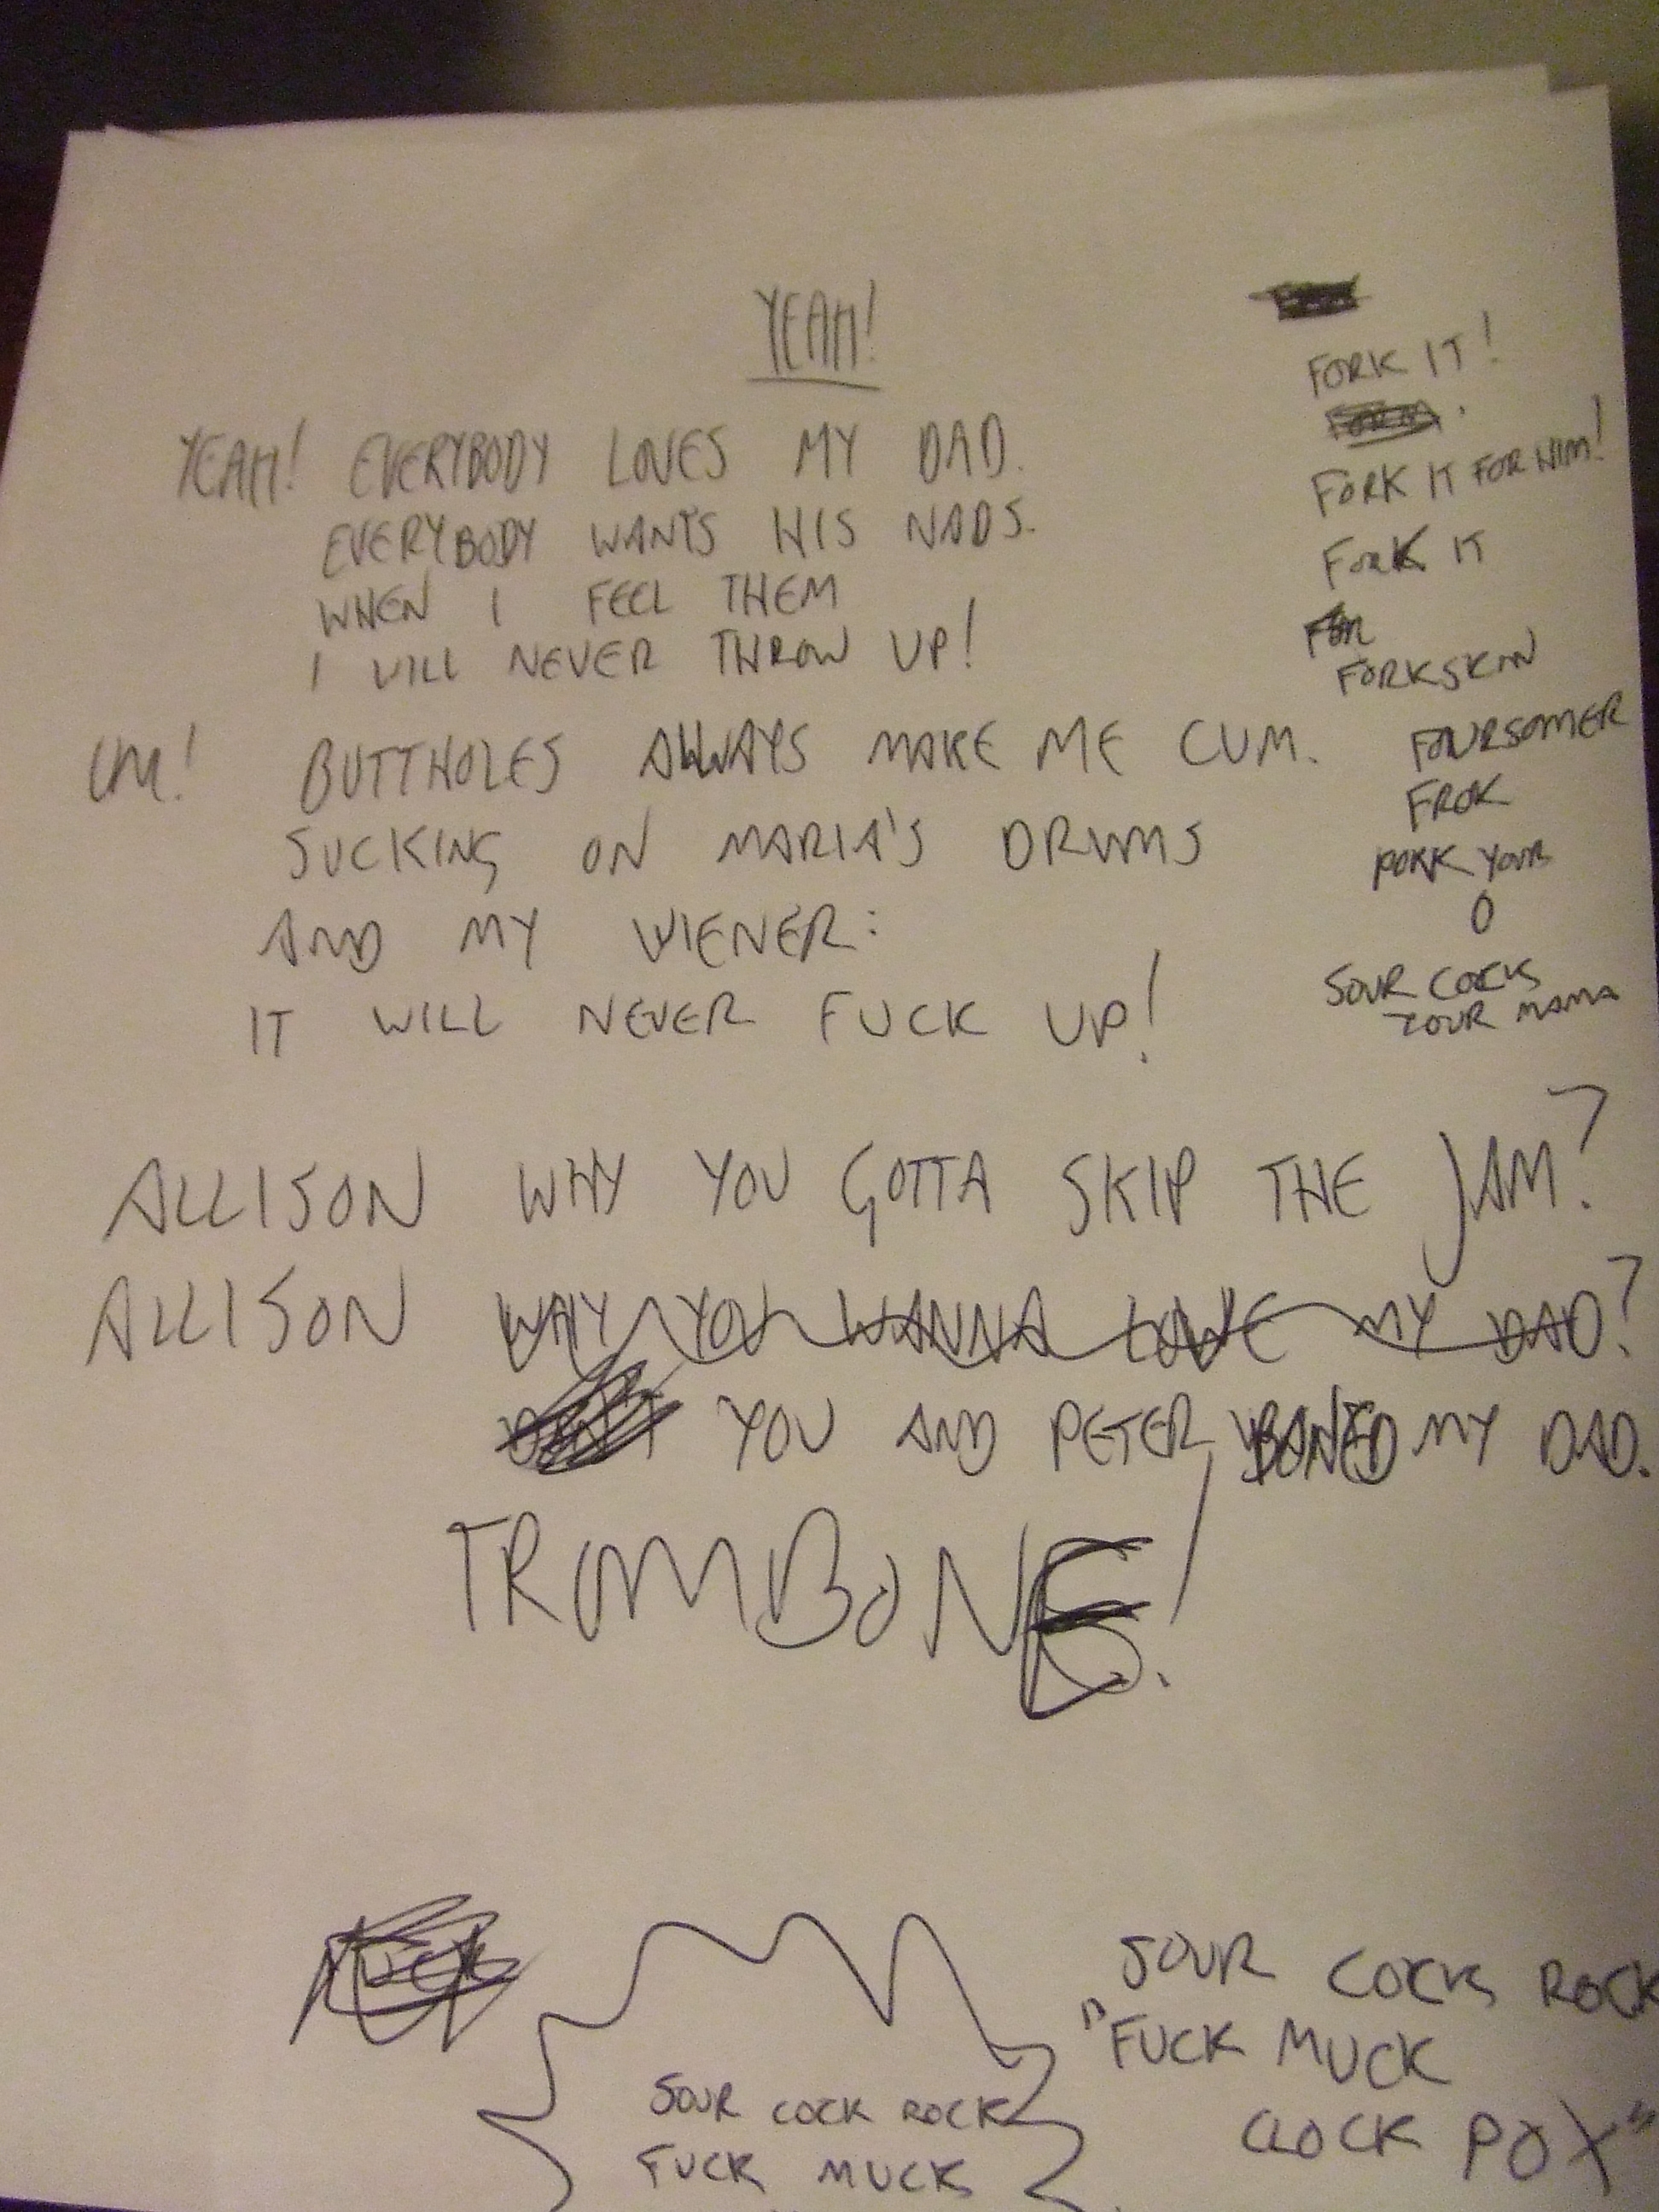 YEAH!
YEAH! EVERYBODY LOVES MY DAD.
EVERYBODY WANTS HIS NADS.
WHEN I FEEL THEM
I WILL NEVER THROW UP!
UM! BUTTHOLES ALWAYS MAKE ME CUM.
SUCKING ON MARIA'S DRUMS
AND MY WIENER:
IT WILL NEVER FUCK UP!
ALLISON WHY YOU GOTTA SKIP THE JAM?
ALLISON WHY YOU WANNA LOVE MY DAD?
YOU AND PETER BONED MY DAD.
TROMBONED!
FORK IT!
FORK IT FOR HIM!
FORK IT
FORKSKIN
FOURSOMER
FROK
YOUR
O
SOUR COCKS
YOUR MAMA
SOUR COCK ROCK
FUCK MUCK
SOUR COCKS ROCK
"FUCK MUCK
CLOCK POX"